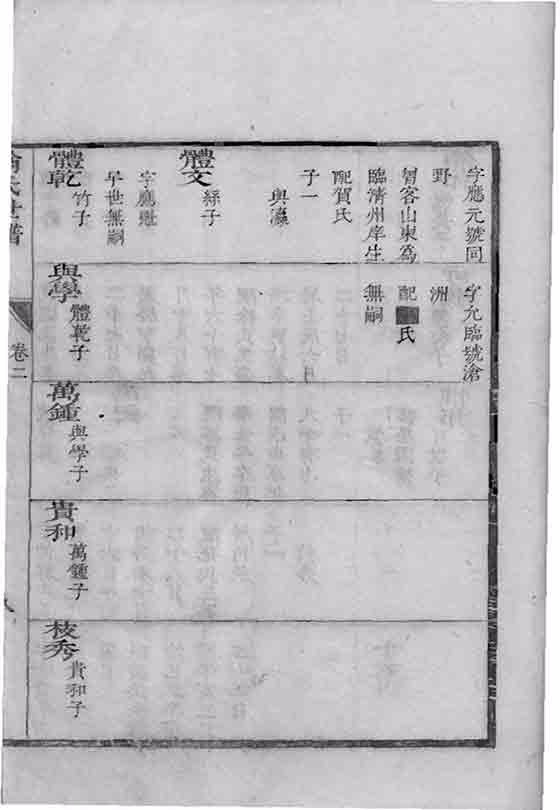 字應元號同
野
客山東為
臨清州庠生
配賀氏
子一
與瀛
體文 絲子
字應魁
早世無嗣
體乾 竹子
字允臨號滄
洲
配 氏
無嗣
與學 體乾子
萬鍾 與學子
貴和 萬鍾子
枝秀 貴和子
氏世譜
卷二